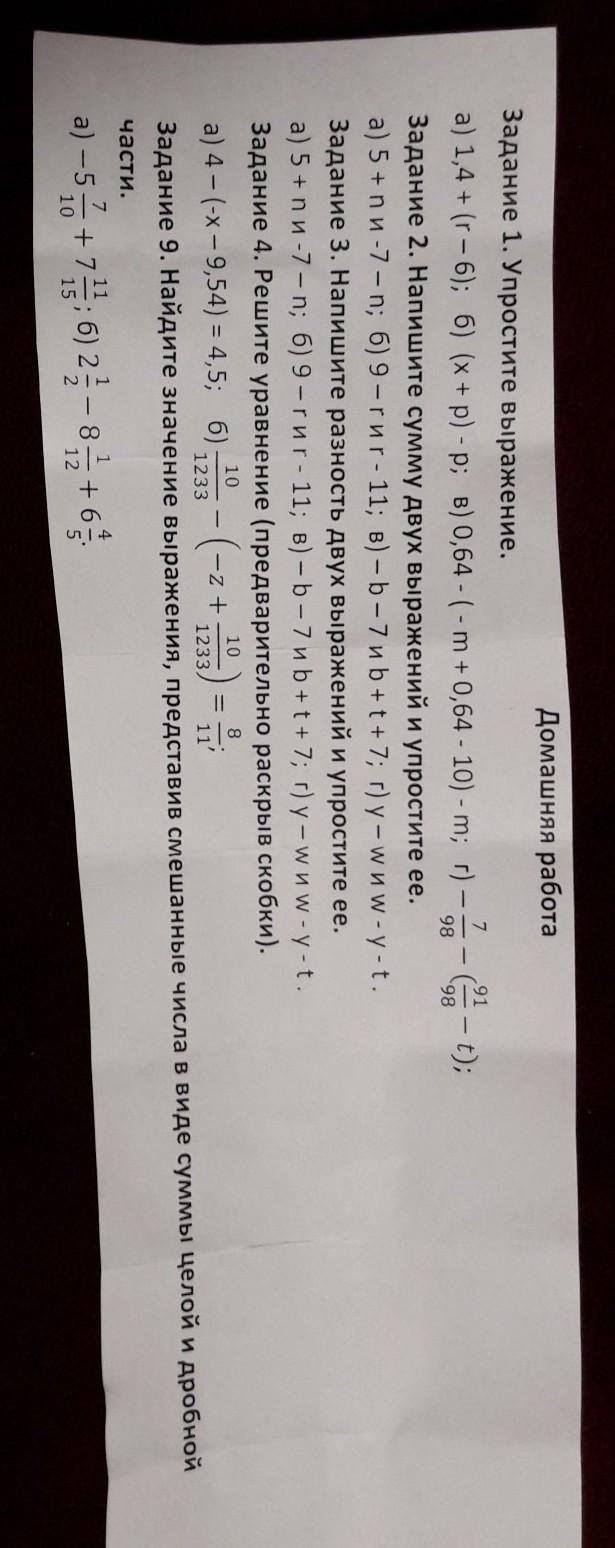 Домашняя работа
Задание 1. Упростите выражение.
а) 1,4 + (r – 6); б) (x + p) - p; в) 0,64 - ( - m + 0,64 - 10) - m; г) – 7/98 – (91/98 – t);
Задание 2. Напишите сумму двух выражений и упростите ее.
а) 5 + n и -7 – n; б) 9 – r и r - 11; в) – b – 7 и b + t + 7; г) y – w и w - y - t .
Задание 3. Напишите разность двух выражений и упростите ее.
а) 5 + n и -7 – n; б) 9 – r и r - 11; в) – b – 7 и b + t + 7; г) y – w и w - y - t .
Задание 4. Решите уравнение (предварительно раскрыв скобки).
а) 4 – (-x – 9,54) = 4,5; б) 10/1233 – (–z + 10/1233) = 8/11;
Задание 9. Найдите значение выражения, представив смешанные числа в виде суммы целой и дробной
части.
а) –5 7/10 + 7 11/15; б) 2 1/2 – 8 1/12 + 6 4/5.